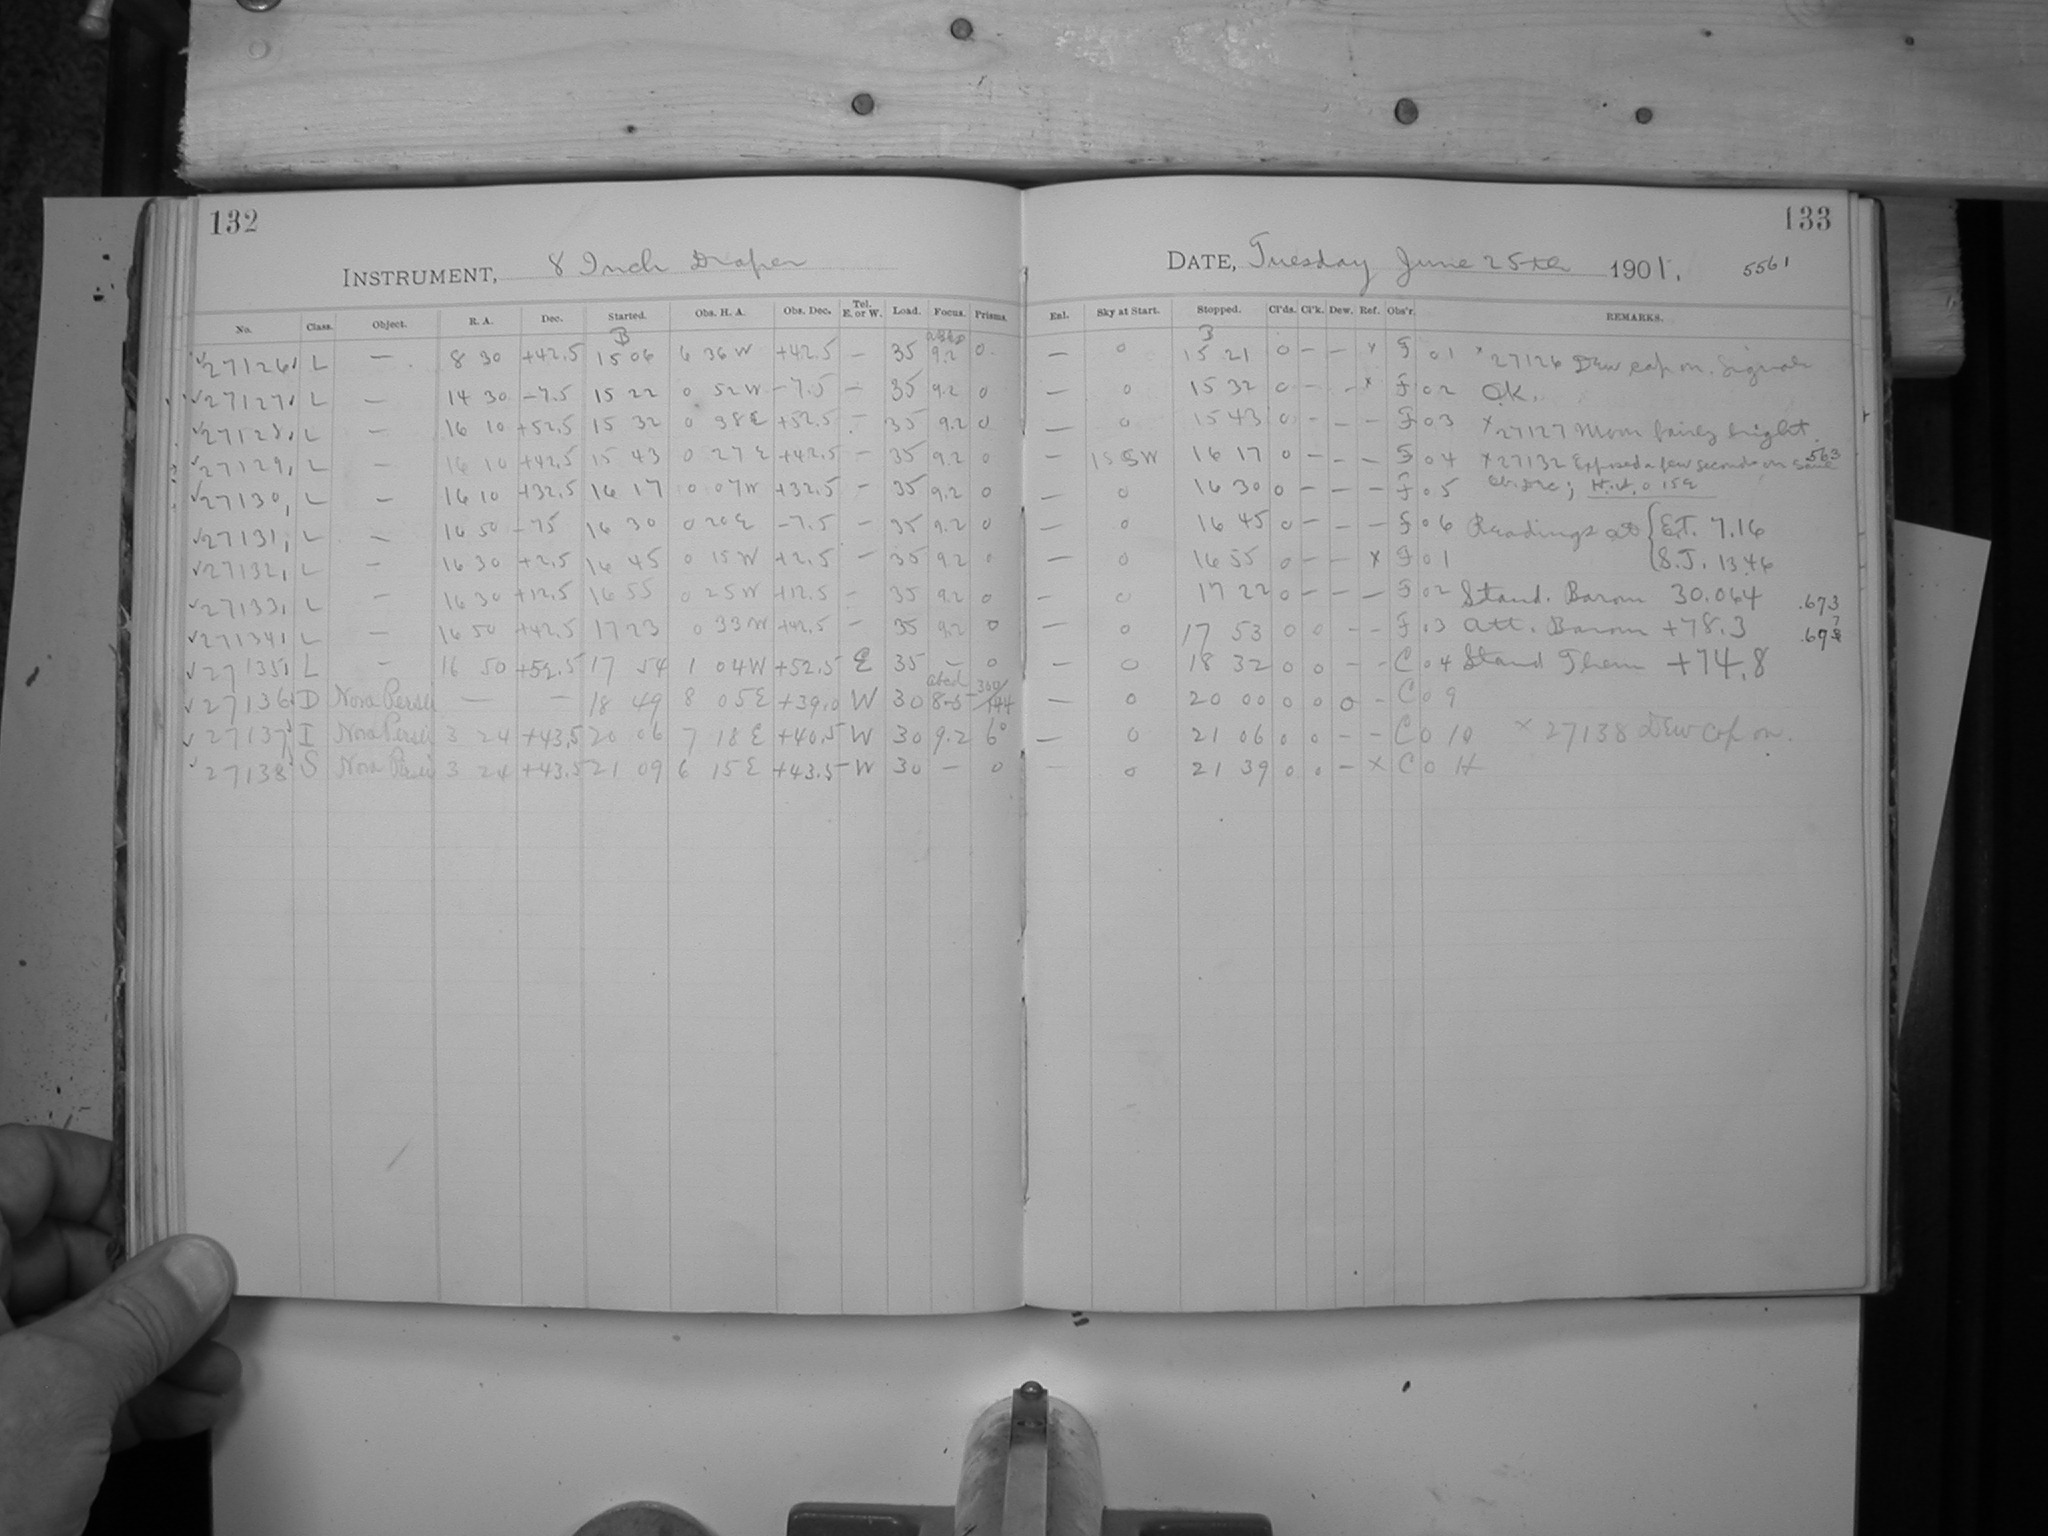 132
INSTRUMENT, 8 Inch Draper
No. Class. Object. R. A. Dec. Started. Obs. H. A. Obs. Dec. Tel. E. or W. Load. Focus. Prisms.
B
27126 L — 8 30 +42.5 15 06 6 36 W +42.5 — 35 9.2 0
27127 L — 14 30 -7.5 15 22 0 52 W -7.5 — 35 9.2 0
27128 L — 16 10 +52.5 15 32 0 38 E +52.5 — 35 9.2 0
27129 L — 16 10 +42.5 15 43 0 27 E +42.5 — 35 9.2 0
27130 L — 16 10 +32.5 16 17 0 07 W +32.5 — 35 9.2 0
27131 L — 16 50 -7.5 16 30 0 20 E -7.5 — 35 9.2 0
27132 L — 16 30 +2.5 16 45 0 15 W +2.5 — 35 9.2 0
27133 L — 16 30 +12.5 16 55 0 25 W +12.5 — 35 9.2 0
27134 L — 16 50 +42.5 17 23 0 33 W +42.5 — 35 9.2 0
27135 L — 16 50 +52.5 17 54 1 04 W +52.5 E 35 — 0
27136 D Nova Persei — — 18 49 8 05 E +39.0 W 30 8-5
27137 I Nova Persei 3 24 +43.5 20 06 7 18 E +40.5 W 30 9.2 6°
27138 S Nova Persei 3 24 +43.5 21 09 6 15 E +43.5 W 30 — 0
133
DATE, Tuesday June 25th 1901. 5561
Enl. Sky at Start. Stopped. Cl'ds. Cl'k. Dew. Ref. Obs'r. REMARKS.
B
— 0 15 21 0 — — x F 01 x 27126 Dew cap on. Signals
— 0 15 32 0 — — x F 02 OK.
— 0 15 43 0 — — — F 03 x 27127 Moon fairly bright.
— 16 17 0 — — — F 04 x 27132 Exposed a few seconds on same 563
— 0 16 30 0 — — — F 05 H.A. 0 15E
— 0 16 45 0 — — — F 06 Readings at { E.T. 7.16
— 0 16 55 0 — — x F 01 S.T. 13 46
— 0 17 22 0 — — — F 02 Stand. Barom 30.064 .673
— 0 17 53 0 0 — — F 03 Att. Barom +78.3
— 0 18 32 0 0 — — C 04 Stand Therm +74.8
— 0 20 00 0 0 0 — C 09
— 0 21 06 0 0 — — C 0 10 x 27138 Dew Cap on.
— 0 21 39 0 0 — x C 0